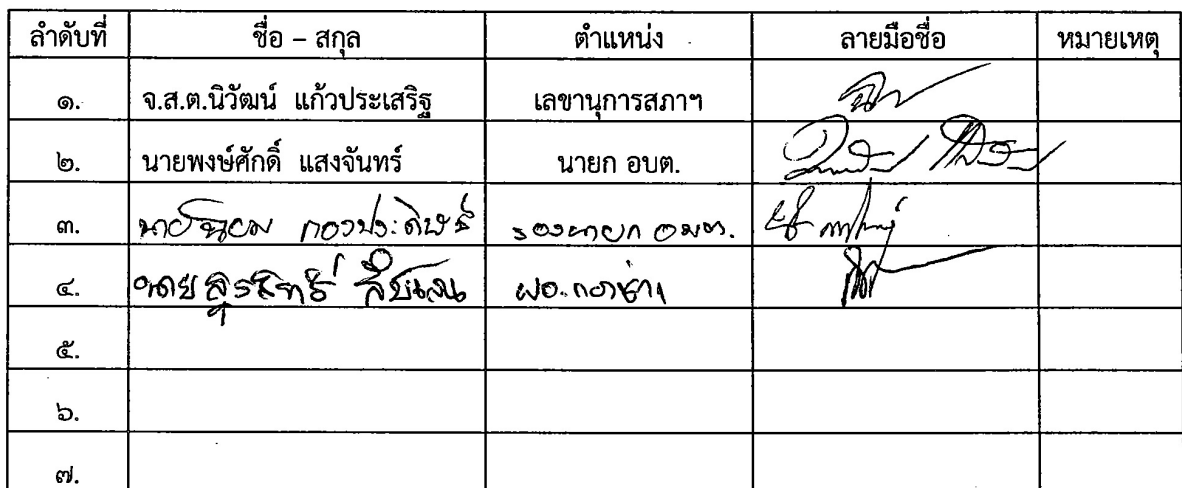 ลำดับที่ ชื่อ – สกุล ตำแหน่ง ลายมือชื่อ หมายเหตุ
๑. จ.ส.ต.นิวัฒน์ แก้วประเสริฐ เลขานุการสภาฯ
๒. นายพงษ์ศักดิ์ แสงจันทร์ นายก อบต.
๓. นายนิยม กองประดิษฐ์ รองนายก อบต.
๔. นายสุรสิทธิ์ ผอ.กองช่าง
๕.
๖.
๗.